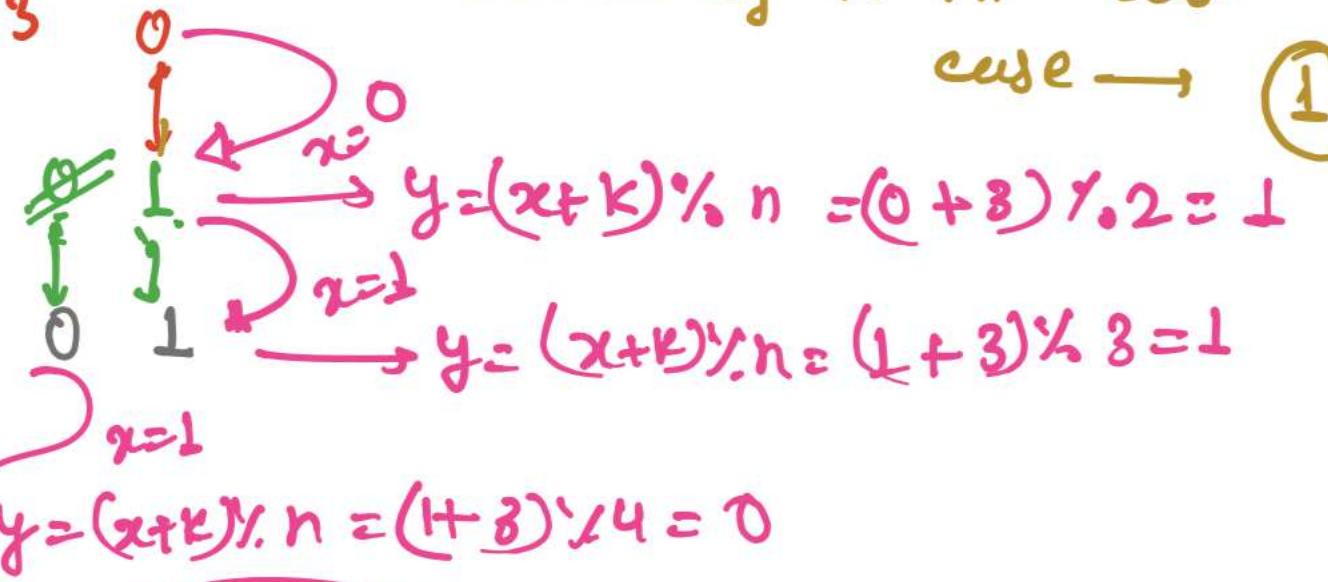 3 0
case → 1
x=0
0 1 y=(x+k)% n =(0+3)%2= 1
x=1
0 1 y= (x+k)%n= (1+3)% 3=1
x=1
y=(x+k)% n =(1+3)%4= 0